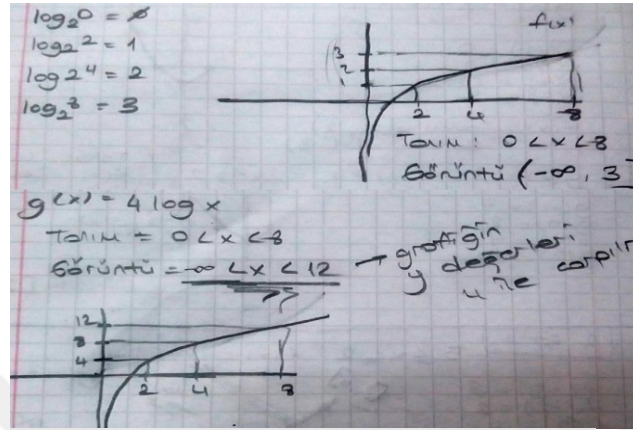 log₂0 = ø
log₂2 = 1
log 2⁴ = 2
log₂8 = 3
f(x)
3
2
1
2 4 8
Tanım : 0 < x < 8
Görüntü (-∞, 3
g(x) = 4 log x
Tanım = 0 < x < 8
Görüntü = -∞ < x < 12 → grafiğin
y değerleri
4 ile çarpılır
12
8
4
2 4 8